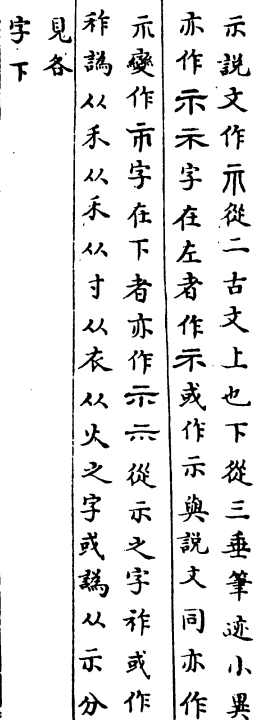 示説文作𥘅從二古文上也下從三垂筆迹小異
亦作示示字在左者作示或作示與説文同亦作
𥘅變作市字在下者亦作示示從示之字祚或作
祚譌从禾从釆从寸从衣从火之字或譌从示分
見各
字下